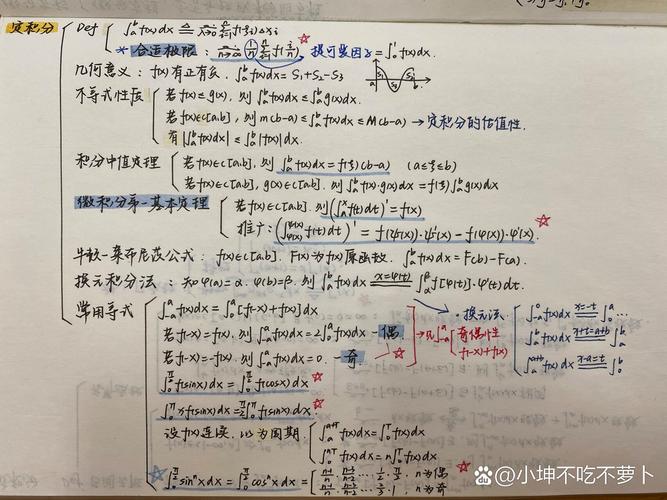 定积分 Def { ∫_a^b f(x)dx ≜ lim_{λ→0} Σ_{i=1}^n f(ξi)Δxi
* 合适极限: lim_{n→∞} (1/n) Σ_{i=1}^n f(i/n) 提可爱因子 = ∫_0^1 f(x)dx.
几何意义: f(x)有正有负, ∫_a^b f(x)dx = S1+S2-S3
a b
不等式性质 { 若f(x)≤g(x), 则∫_a^b f(x)dx ≤ ∫_a^b g(x)dx.
若f(x)∈C[a.b], 则 m(b-a) ≤ ∫_a^b f(x)dx ≤ M(b-a) → 定积分的估值性.
有|∫_a^b f(x)dx| ≤ ∫_a^b |f(x)|dx.
积分中值定理 { 若f(x)∈C[a.b], 则 ∫_a^b f(x)dx = f(ξ)(b-a) (a≤ξ≤b)
若f(x)∈C[a.b], g(x)∈C[a.b]. 则 ∫_a^b f(x)·g(x)dx = f(ξ)∫_a^b g(x)dx
微积分第一基本定理 { 若f(x)∈C[a.b]. 则(∫_a^x f(t)dt)' = f(x)
推广: (∫_{φ(x)}^{ψ(x)} f(t)dt)' = f(ψ(x))·ψ'(x) - f(φ(x))·φ'(x). ☆
牛顿-莱布尼茨公式: f(x)∈C[a.b]. F(x)为f(x)原函数. ∫_a^b f(x)dx = F(b)-F(a).
换元积分法: 如φ(α)=a. φ(β)=b. 则 ∫_a^b f(x)dx x=φ(t) ∫_α^β f[φ(t)]·φ'(t)dt.
常用等式 { ∫_{-a}^a f(x)dx = ∫_0^a [f(-x)+f(x)]dx
若f(-x)=f(x), 则∫_{-a}^a f(x)dx = 2∫_0^a f(x)dx - 偶
若f(-x)=-f(x), 则∫_{-a}^a f(x)dx = 0. - 奇
→ 见∫_{-a}^a { 奇偶性
f(-x)+f(x) ☆
∫_0^{π/2} f(sinx)dx = ∫_0^{π/2} f(cosx)dx ☆
∫_0^π xf(sinx)dx = π/2 ∫_0^π f(sinx)dx. ☆
设f(x)连续, 以T为周期: { ∫_a^{a+T} f(x)dx = ∫_0^T f(x)dx
∫_0^{nT} f(x)dx = n∫_0^T f(x)dx.
☆ ∫_0^{π/2} sin^n x dx = ∫_0^{π/2} cos^n x dx = { (n-1)/n · (n-3)/(n-2) ··· 1/2 · π/2, n为偶
(n-1)/n · (n-3)/(n-2) ··· 2/3 · 1 n为奇
· 换元法: { ∫_{-a}^0 f(x)dx x=-t ∫_0^a ...
∫_a^b f(x)dx x+t=a+b ∫_a^b
∫_a^{a+b} f(x)dx x-a=t ∫_0^b
小坤不吃不萝卜